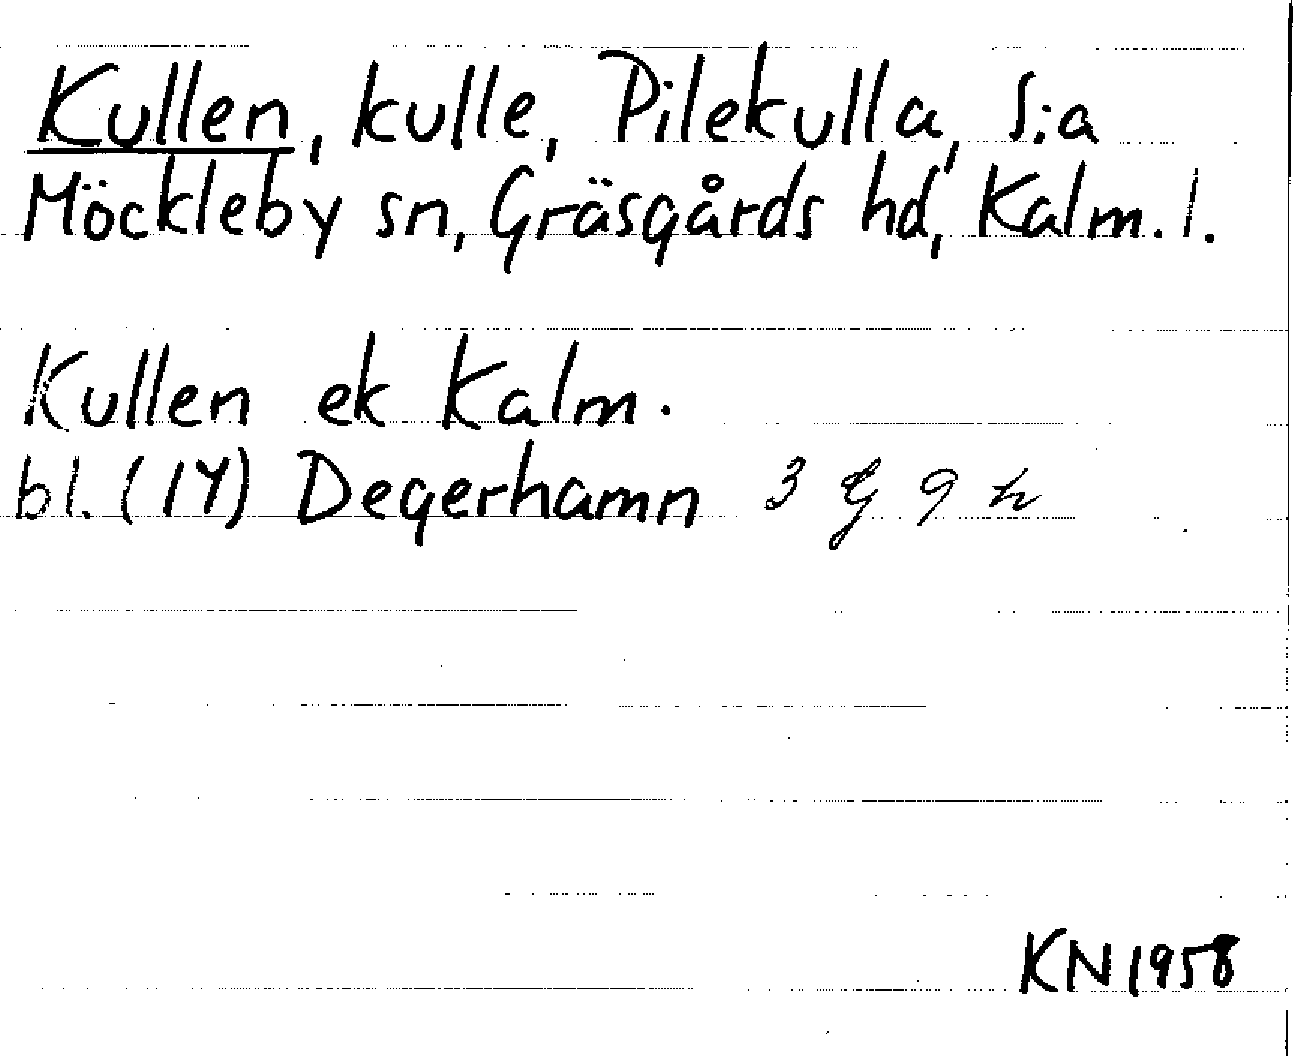 Kullen, kulle, Pilekulla, S:a
Möckleby sn, Gräsgårds hd, Kalm. l.
Kullen ek Kalm.
bl. (14) Degerhamn 3 G 9 h
KN 1958